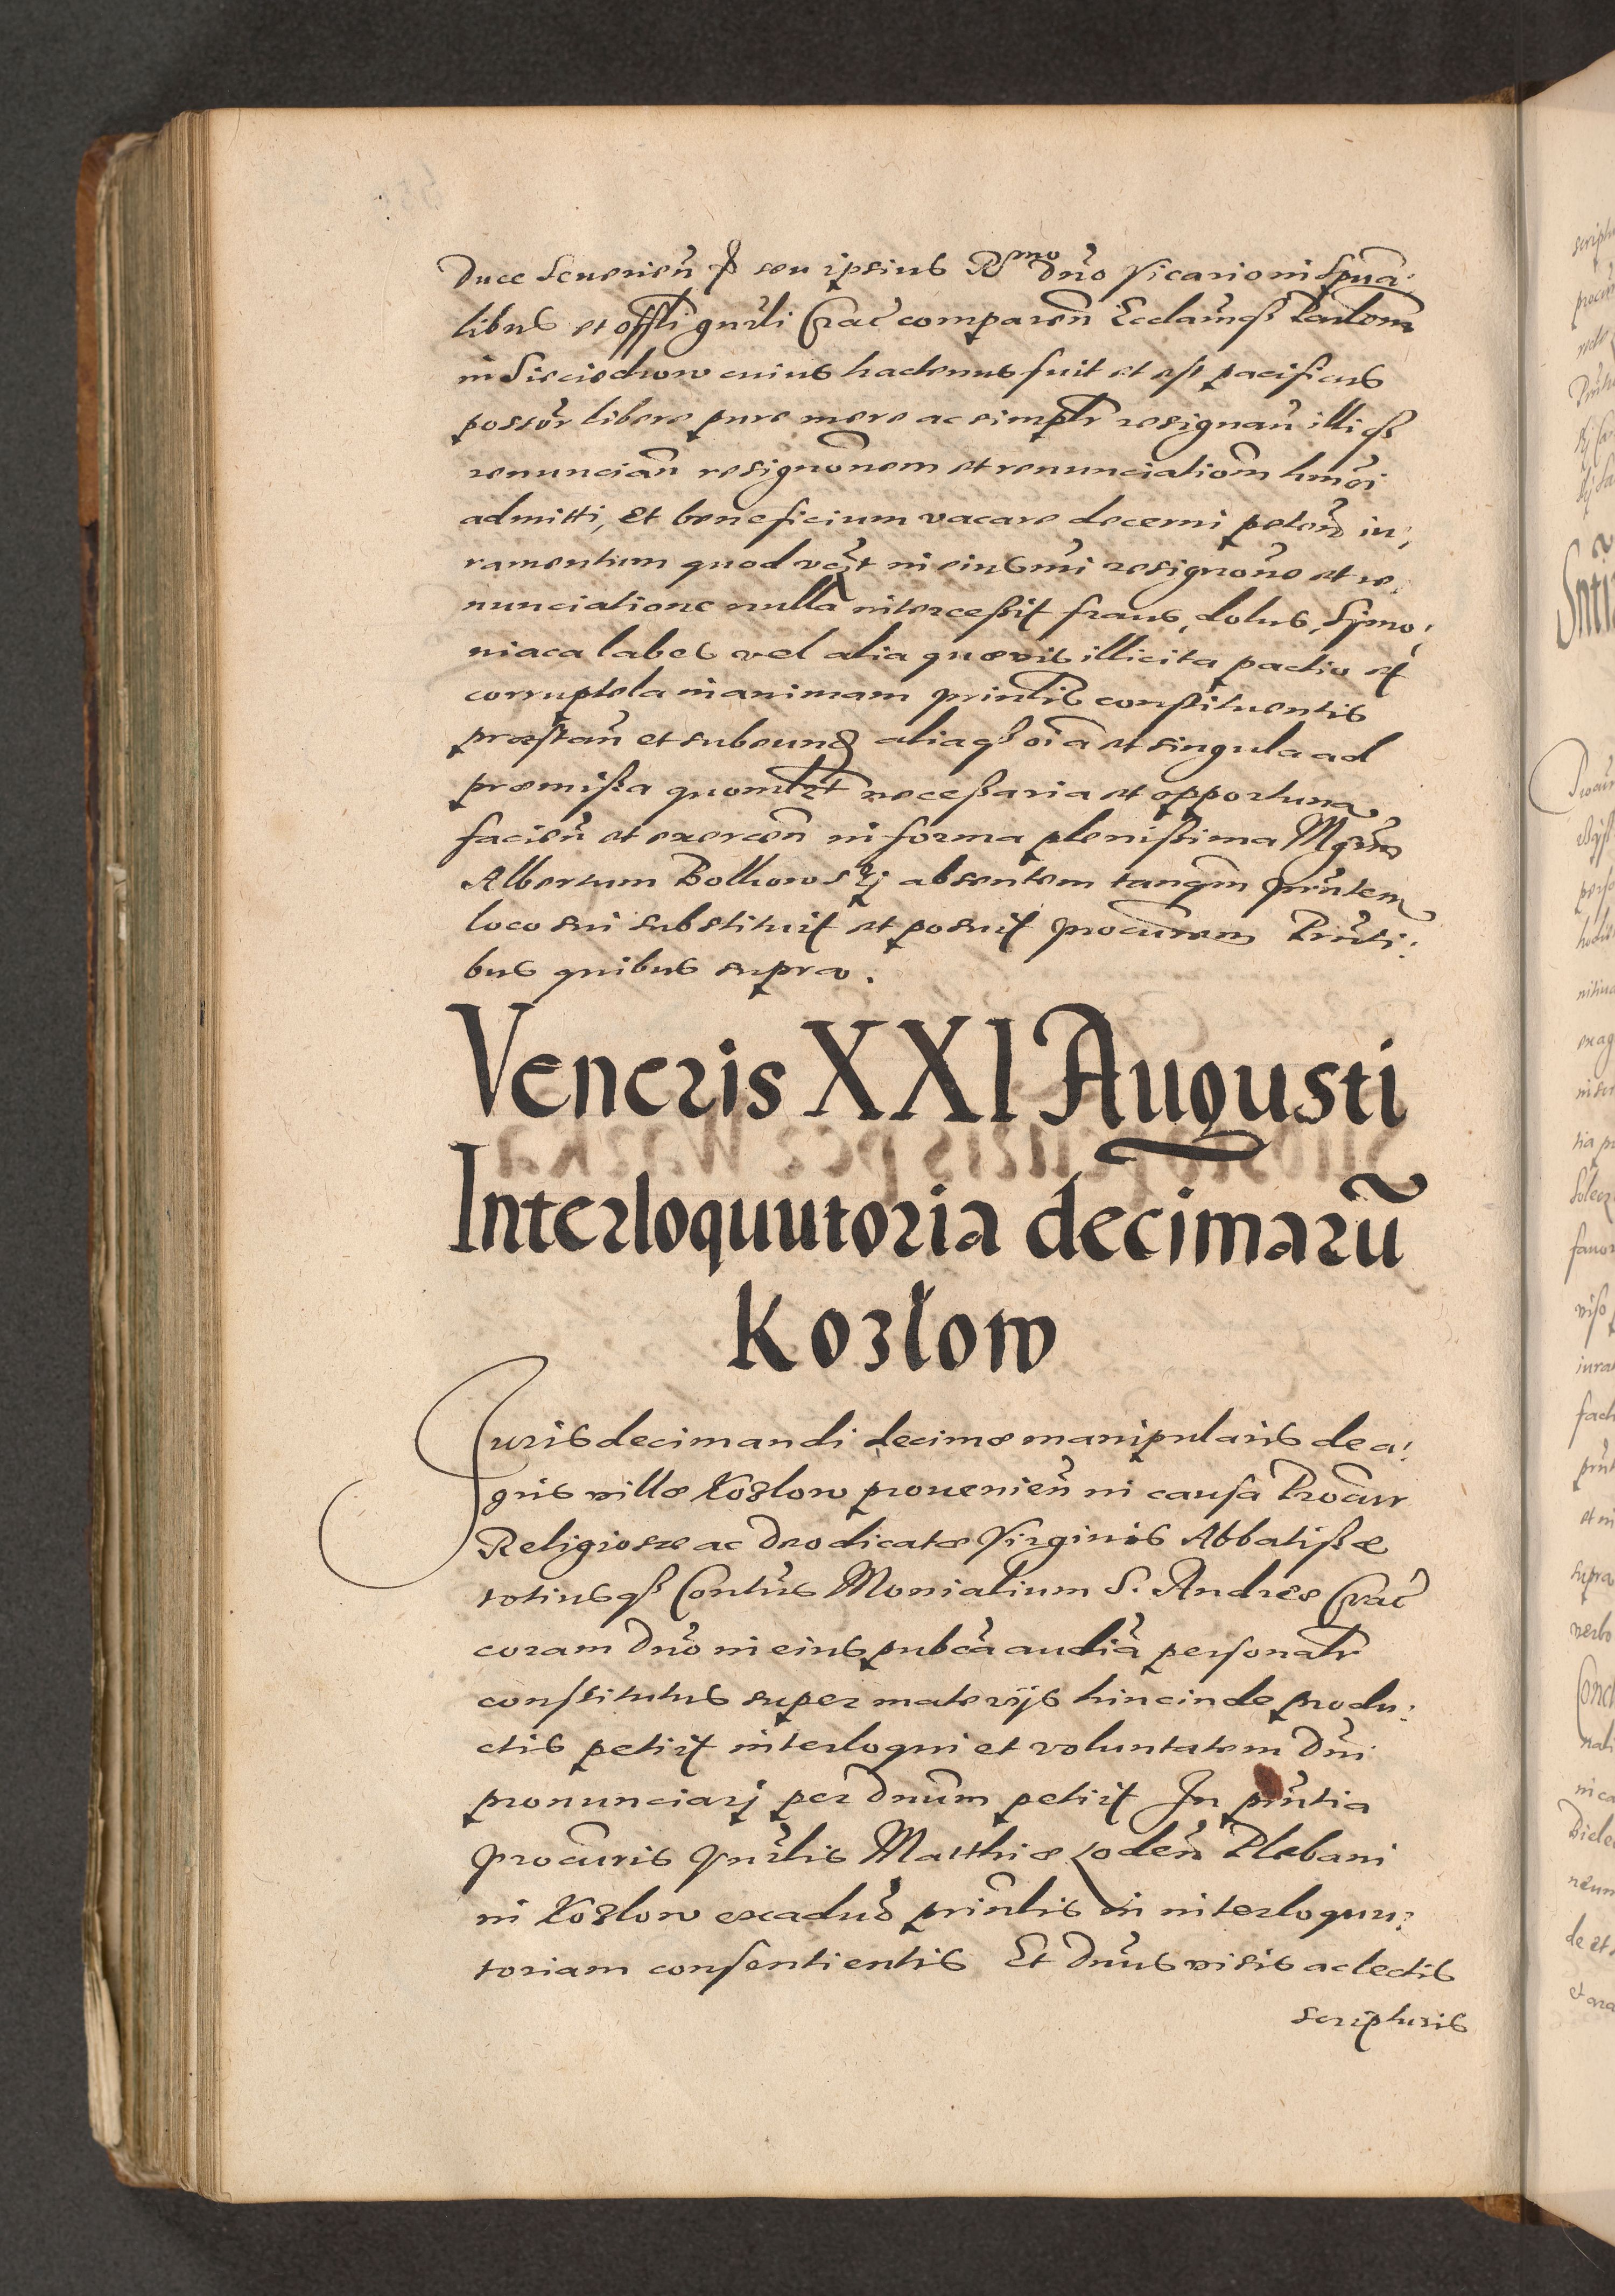 Duce Seuerien̄ seu ipsius Rmo dn̄o Vicario in Spūa:
libus et offli gnrli Crac̄ comparen̄ Eccl̄am qꝫ Parl̄om
in Siecieckow cuius hactenus fuit et est pacificus
possor̄ libere pure mere ac simplr̄ resignan̄ illi qꝫ
renuncian̄ resignōnem et renunciatiom̄ hm̄oi
admitti, et beneficium vacare decerni peten̄ iu,
ramentum quod in eiusm̄i resignōne et re,
nunciatione nulla intercessit fraus, dolus, Symo,
niaca labes vel alia quævis illicita pactio et
corruptela in animam prin̄lis constituentis
præstan̄ et subeund aliaqꝫ oīa et singula ad
præmissa quomlt necessaria et opportuna
facien̄ et exercen̄ in forma plenissima Mgrm̄
Albertum absentem tanqm̄ prn̄tem
loco sui substituit et posuit procūrem Prn̄ti:
bus quibus supra.
Veneris XXI Augusti
Interloquutoria decimarū
Kozlow
Juris decimandi decimæ manipularis de a:
gris villæ Kozlow prouenien̄ in causa Procur
Religiosæ ac Deo dicatæ Virginis Abbatissæ
totiusqꝫ Conūtus Monialium S. Andreæ Crac̄
coram Dn̄o in eius pub̄ca audīa personalr̄
constitutus super materijs hincinde produ:
ctis petiit interloqui et voluntatem Dn̄i
pronunciarj per Dnūm petiit In prn̄tia
procūris prn̄lis Matthiæ Plebani
in Kozlow ex aduo prin̄lis in interloquu:
toriam consentientis Et Dn̄us visis ac lectis
scripturis